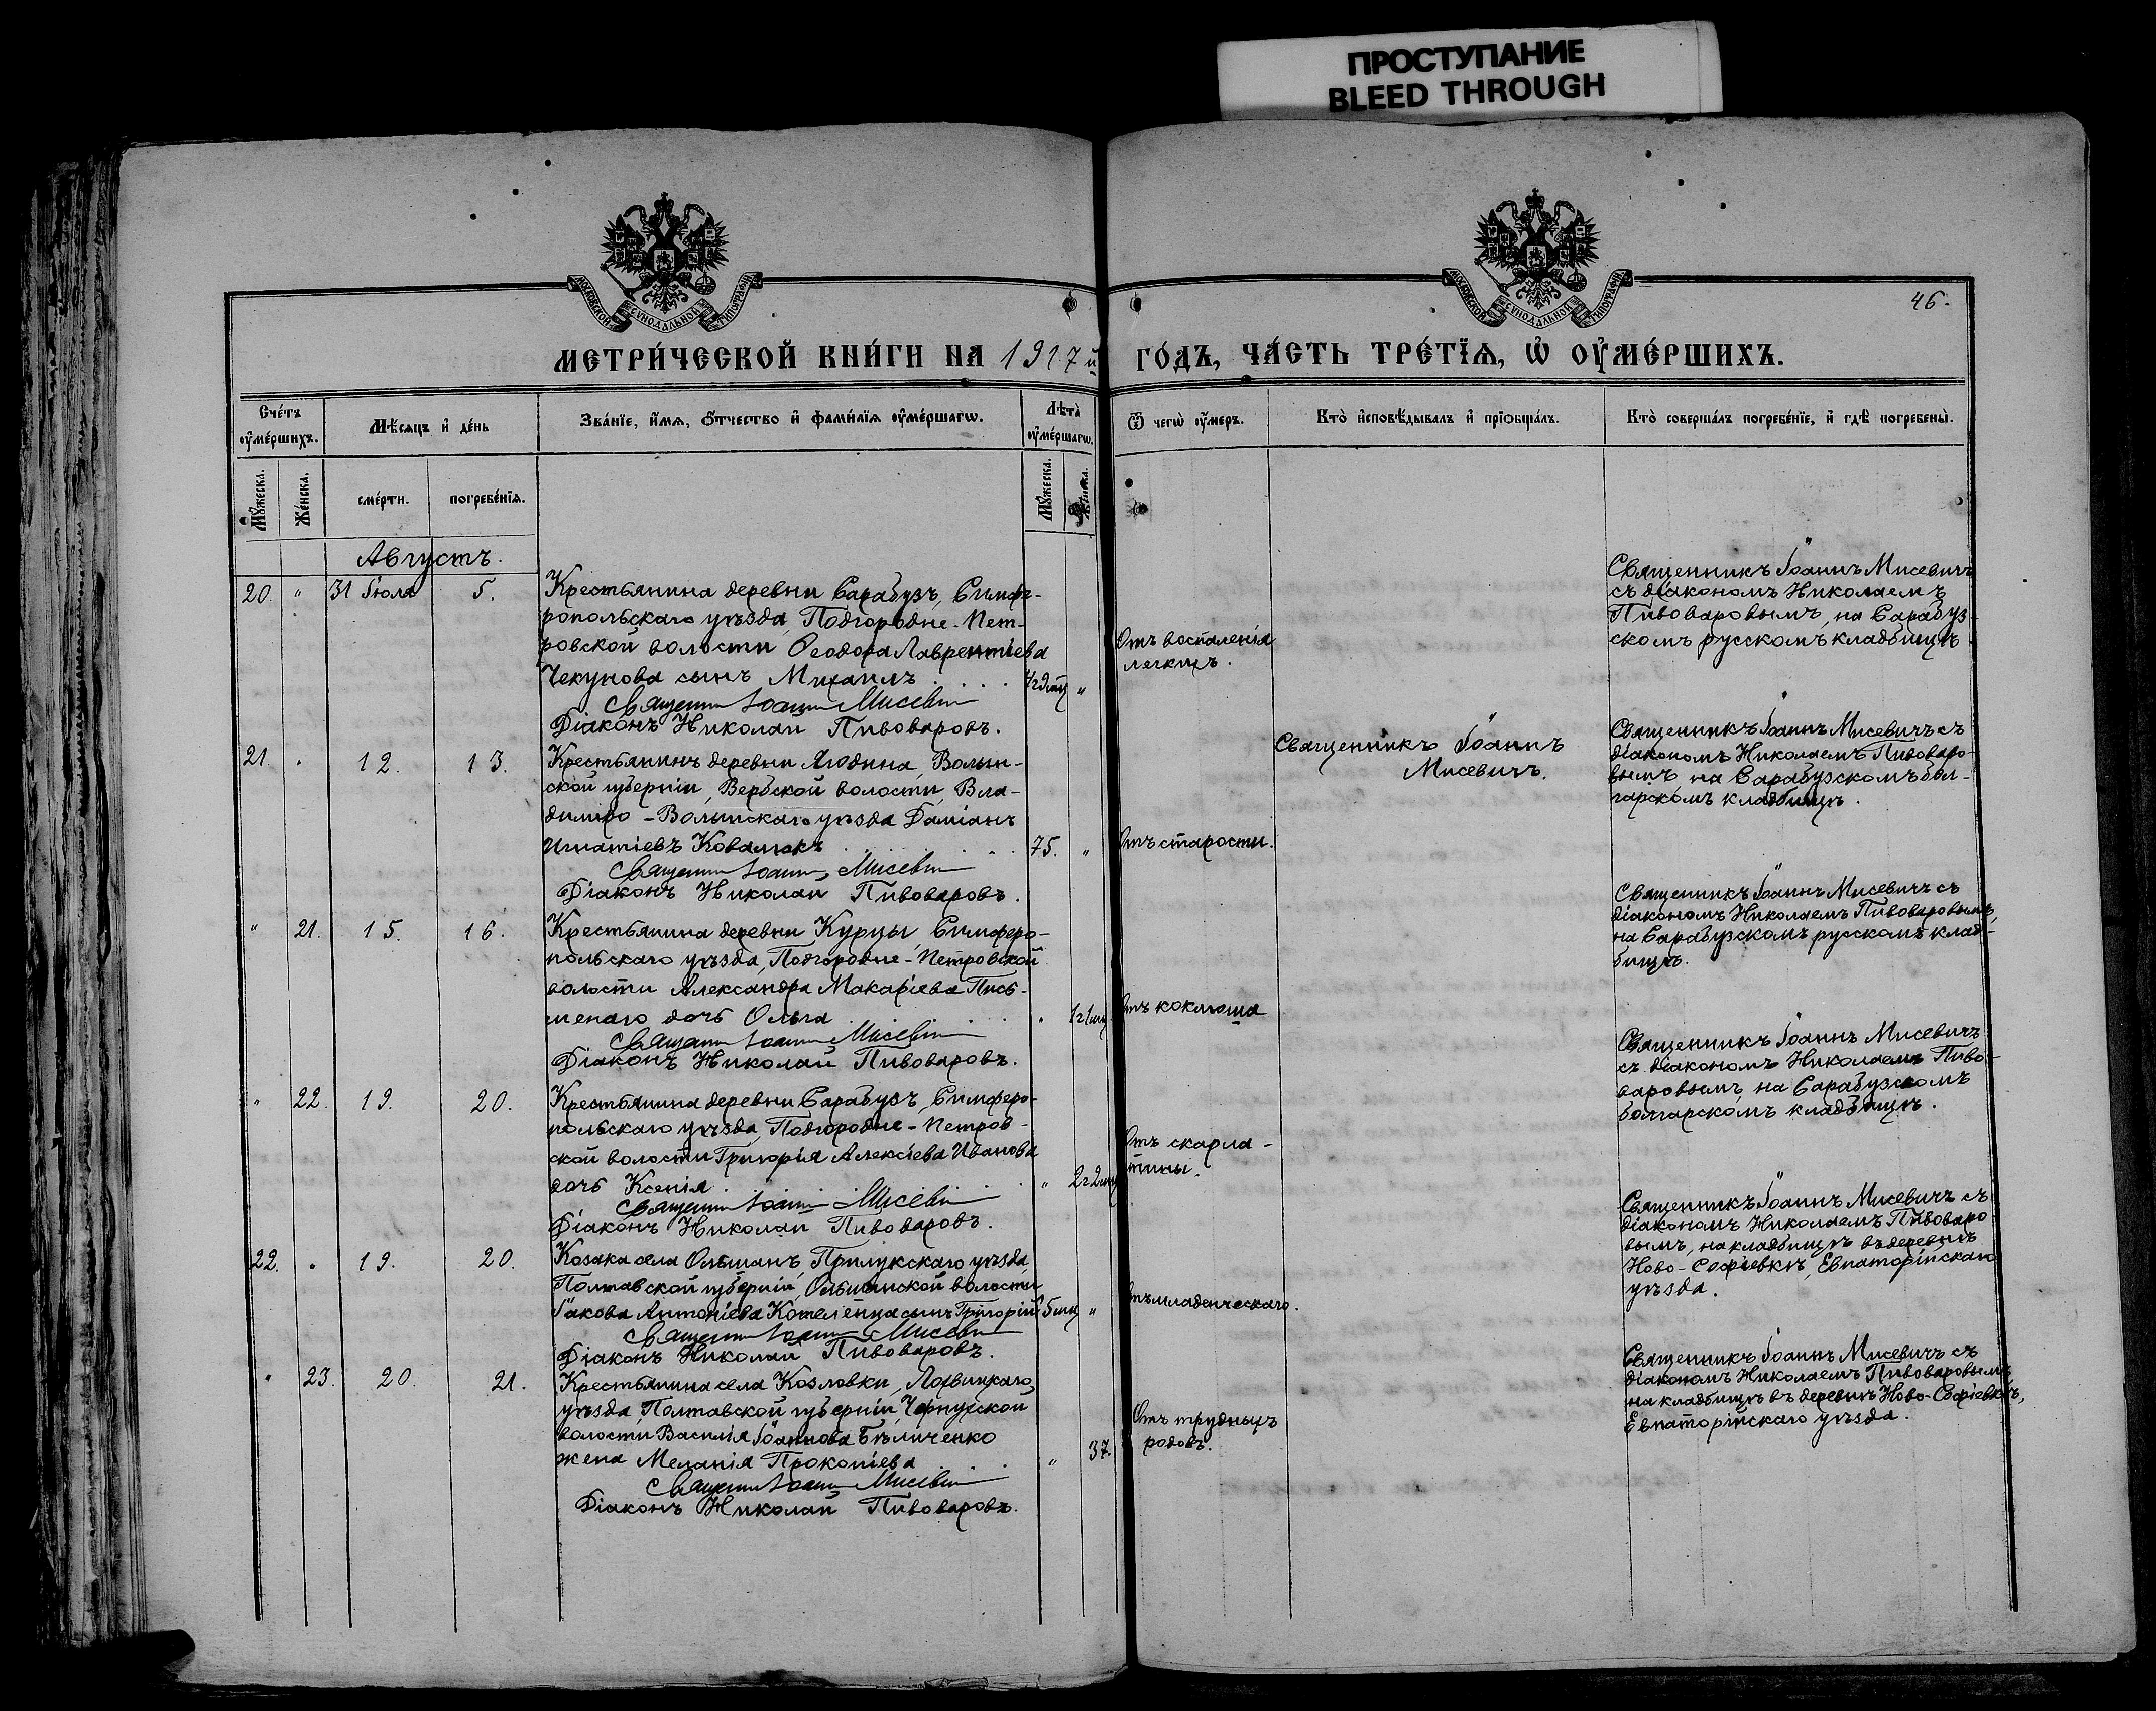 ПРОСТУПАНИЕ
BLEED THROUGH
МОСКОВСКОЙ СѴНОДАЛЬНОЙ ТИПОГРАФІИ
МОСКОВСКОЙ СѴНОДАЛЬНОЙ ТИПОГРАФІИ
46.
МЕТРИ́ЧЕСКОЙ КНИ́ГИ НА 1917 й
ГО́ДЪ, ЧА́СТЬ ТРЕ́ТЇѦ, Ѡ҆ ОУ҆МЕ́РШИХЪ.
Сче́тъ
оу҆ме́ршихъ.
Мѣ́сяцъ и҆ де́нь
Зва́нїе, и҆́мѧ, ѻ҆́тчество и҆ фами́лїѧ оу҆ме́ршагѡ.
Лѣта̀
оу҆ме́ршагѡ.
Ѿ чегѡ̀ оу҆́меръ.
Кто̀ и҆сповѣ́дывалъ и҆ прїѡбща́лъ.
Кто̀ соверша́лъ погребе́нїе, и҆ гдѣ̀ погребены̀.
Мꙋжеска.
Же́нска.
сме́рти.
погребе́нїѧ.
Мꙋжеска.
Же́нска.
Августъ.
20. " 31 Іюля 5.
Крестьянина деревни Сарабузъ, Симфе-
ропольскаго уѣзда, Подгородне-Пет-
ровской волости Ѳеодора Лаврентіева
Чекунова сынъ Михаилъ "
Священникъ Іоаннъ Мисевичъ
Діаконъ Николай Пивоваровъ.
Отъ воспаленія
легкихъ.
Священникъ Іоаннъ Мисевичъ
съ діакономъ Николаемъ
Пивоваровымъ, на Сарабуз-
скомъ русскомъ кладбищѣ
21. " 12. 13.
Крестьянинъ деревни Ягодина, Волын-
ской губерніи, Вербской волости, Вла-
диміро-Волынскаго уѣзда Даміанъ
Игнатіевъ Ковальокъ 75. "
Священникъ Іоаннъ Мисевичъ
Діаконъ Николай Пивоваровъ.
Отъ старости.
Священникъ Іоаннъ
Мисевичъ.
Священникъ Іоаннъ Мисевичъ съ
діакономъ Николаемъ Пивоваро-
вымъ на Сарабузскомъ бол-
гарскомъ кладбищѣ.
" 21. 15. 16.
Крестьянина деревни Курцы, Симферо-
польскаго уѣзда, Подгородне-Петровской
волости Александра Макаріева Пись-
менаго дочь Ольга " 1г1мц
Священникъ Іоаннъ Мисевичъ
Діаконъ Николай Пивоваровъ.
Отъ коклюша
Священникъ Іоаннъ Мисевичъ съ
діакономъ Николаемъ Пивоваровымъ,
на Сарабузскомъ русскомъ клад-
бищѣ.
" 22. 19. 20.
Крестьянина деревни Сарабузъ, Симферо-
польскаго уѣзда, Подгородне-Петров-
ской волости Григорія Алексіева Иванова
дочь Ксенія " 2г2мц
Священникъ Іоаннъ Мисевичъ
Діаконъ Николай Пивоваровъ.
Отъ скарла-
тины.
Священникъ Іоаннъ Мисевичъ
съ діакономъ Николаемъ Пиво-
варовымъ, на Сарабузскомъ
болгарскомъ кладбищѣ.
22. " 19. 20.
Козака села Ольшанъ, Прилукскаго уѣзда,
Полтавской губерніи, Ольшанской волости
Іакова Антоніева Котелевца сынъ Григорій 5мц "
Священникъ Іоаннъ Мисевичъ
Діаконъ Николай Пивоваровъ.
Отъ младенческаго.
Священникъ Іоаннъ Мисевичъ съ
діакономъ Николаемъ Пивоваро-
вымъ, на кладбищѣ въ деревнѣ
Ново-Софіевкѣ, Евпаторійскаго
уѣзда.
" 23. 20. 21.
Крестьянина села Козловки, Лохвицкаго
уѣзда, Полтавской губерніи, Чернухской
волости Василія Іоаннова Бѣличенко
жена Меланія Прокопіева " 37.
Священникъ Іоаннъ Мисевичъ
Діаконъ Николай Пивоваровъ.
Отъ трудныхъ
родовъ.
Священникъ Іоаннъ Мисевичъ съ
діакономъ Николаемъ Пивоваровымъ,
на кладбищѣ въ деревнѣ Ново-Софіевкѣ,
Евпаторійскаго уѣзда.